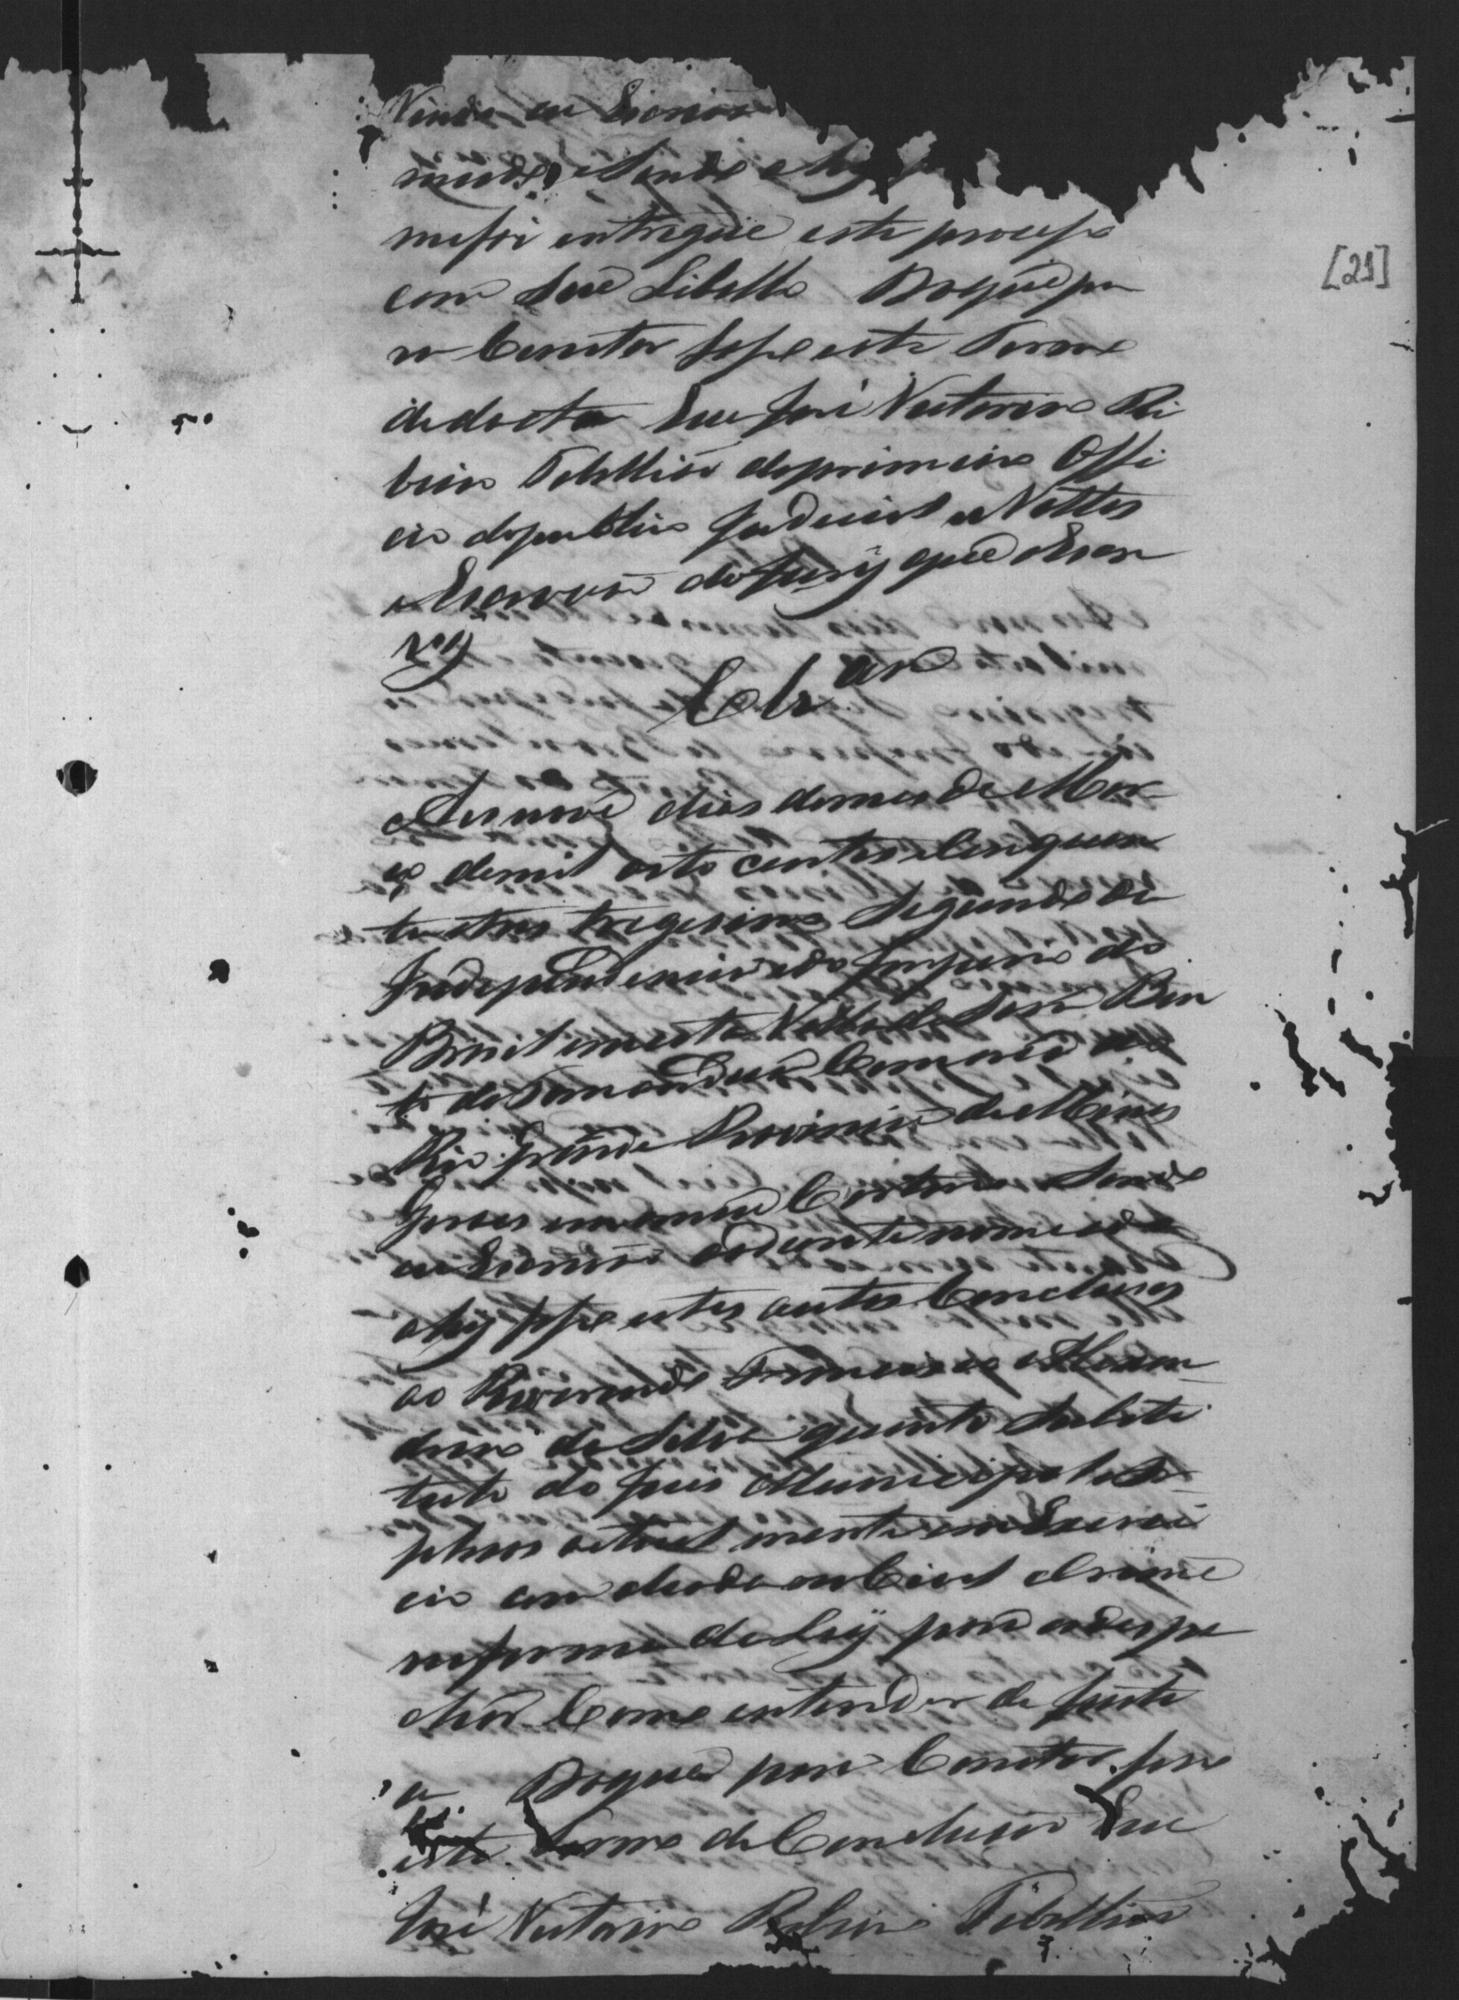 Vindo eu Escrivão
meado, e sendo ahy
mefoi entregue este processo
com seu Libello Doque pa
ra Constar fasso este Termo
dedacta Eu José Victorino Ri
beiro Tabellião doprimeiro Offi
cio dopublico Judicial e Nottas
e Escrivão do Jury que o escre
vy
[21]
Clsam
Aos nove dias domes de Mar
ço demil oito centos e Cinquen
ta e tres trigesimo Segundo da
Independencia e do Imperio do
Brasil em esta Villa de São Ben
to do Tamanduá Comarca do
Rio Grande Provincia de Minas
Geraes em omeu Cartorio Sendo
eu Escrivão adiante nomeado
ahy fasso estes autos Conclusos
ao Reverendo Francisco Alexan
drino da Silva quinto Substi
tuto do Juis Municipal e Or
phaos actual mente em Exerci
cio com alsada no Civel e Crime
na forma da Ley para os despa
char Como entender de Justi
ça Doque para Constar fasso
este Termo de Conclusão Eu
José Victorino Ribeiro Tabellião